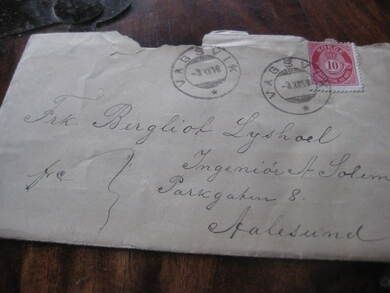 VAGSVIK
VAGSVIK
NORGE
10
Frk Bergliot Lyshoel
Ingeniör A Solem
Parkgaten 8.
Aalesund